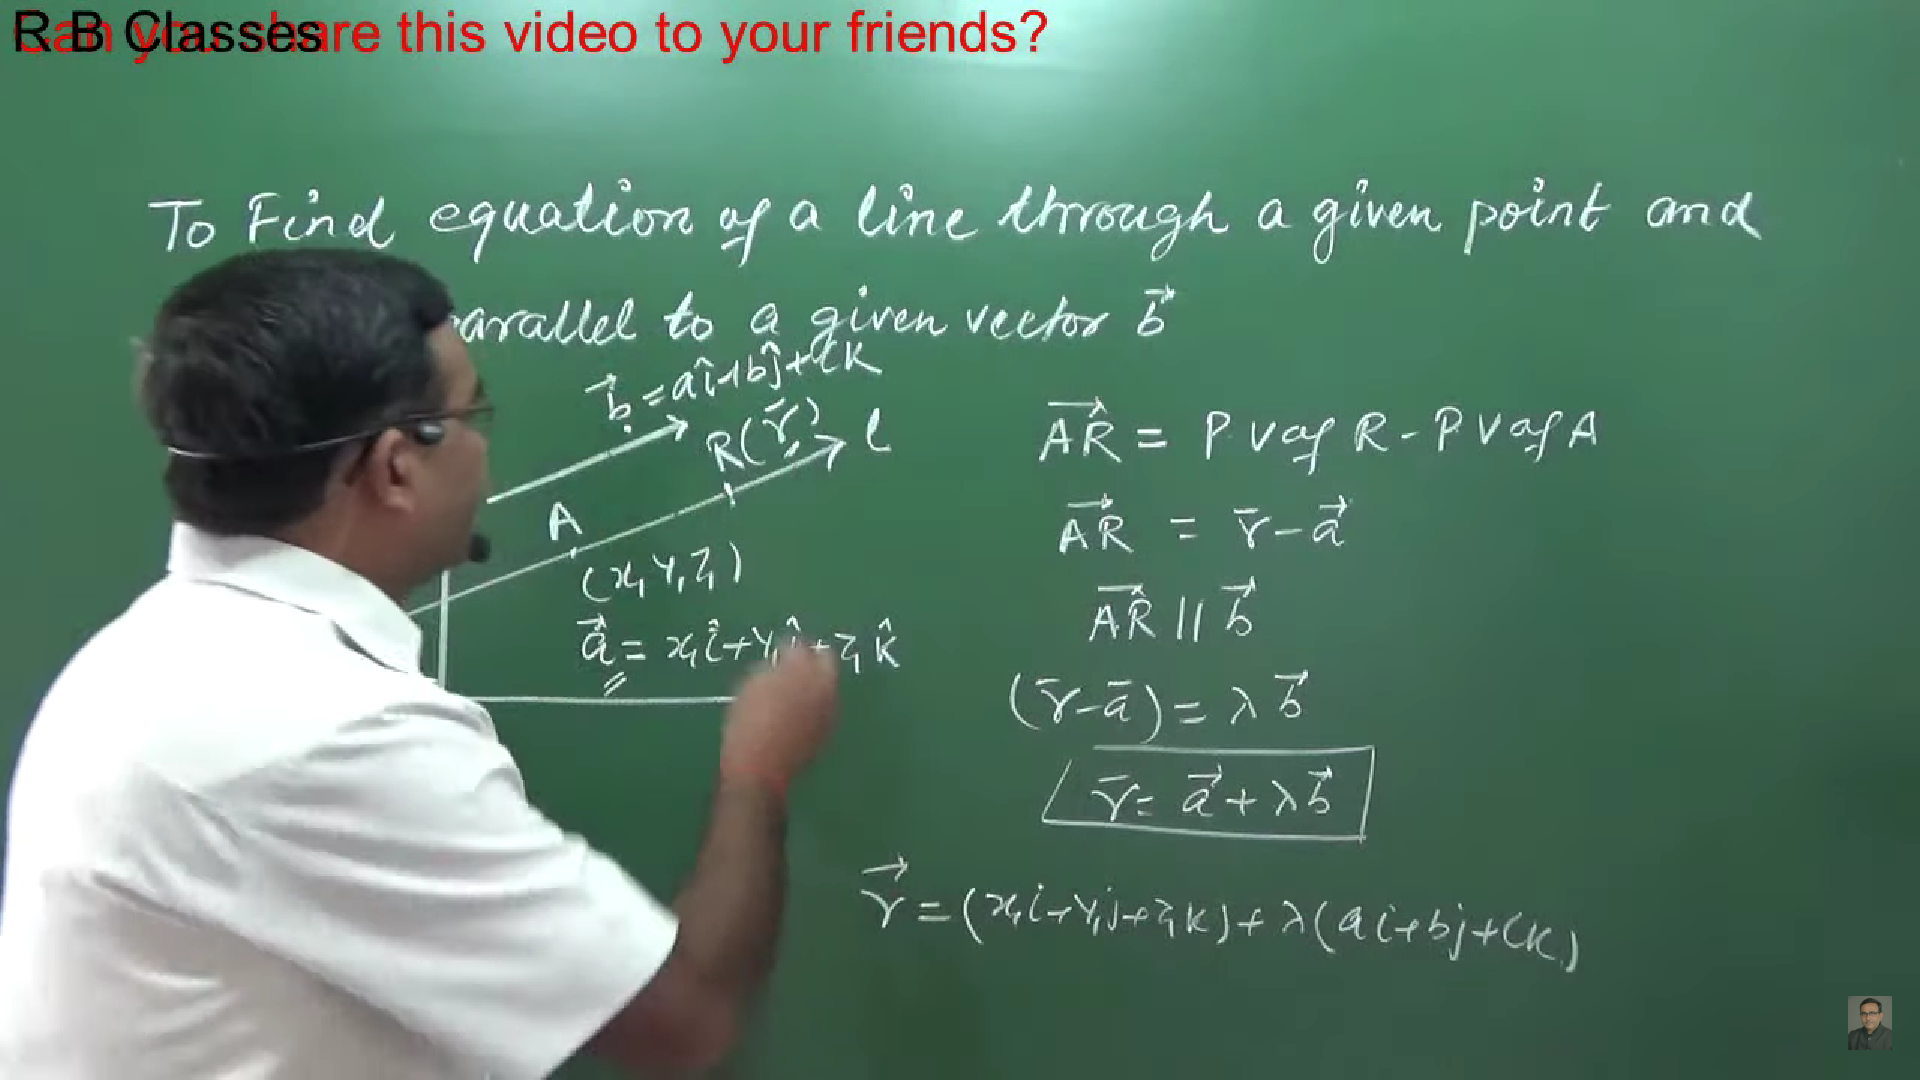 R B Classes
Can you share this video to your friends?
To Find equation of a line through a given point and
parallel to a given vector b⃗
b⃗ = aî+bĵ+ck
R(r̄) l
A
(x₁ y₁ z₁)
a⃗ = x₁î+y₁ĵ+z₁k̂
AR⃗ = P V of R - P V of A
AR⃗ = r̄ - a⃗
AR⃗ || b⃗
(r̄-ā) = λ b⃗
r̄ = a⃗ + λb⃗
r⃗ = (x₁i+y₁j+z₁k)+λ(ai+bj+ck)